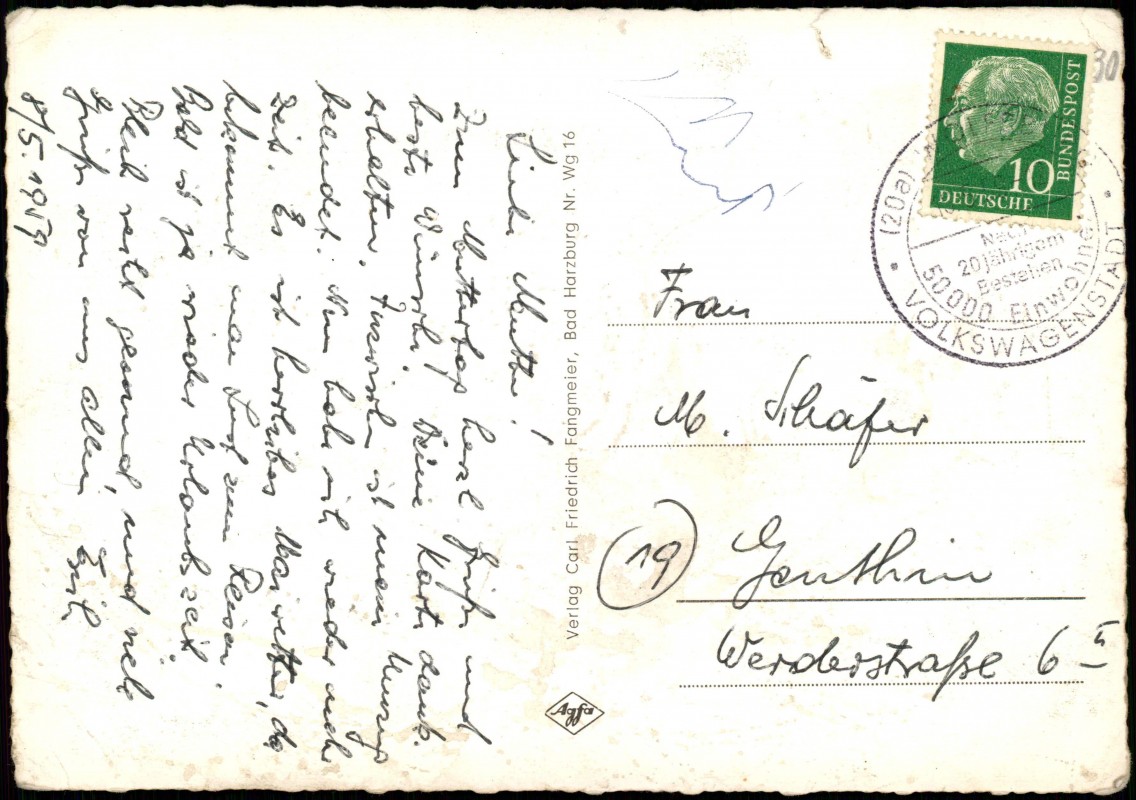 Liebe Mutter!
Zum Muttertag herzl Grüße und
beste Wünsche! Deine Karte dank.
erhalten. Inzwischen ist mein Umzug
beendet. Nun habe ich wieder mehr
Zeit. Es ist herrliches Maiwetter, da
bekommt man Lust zum Reisen.
Bald ist ja wieder Urlaubszeit.
Bleib recht gesund, und viele
Grüße von uns allen,
8/5.1959
Verlag Carl Friedrich Fangmeier, Bad Harzburg Nr. Wg 16
Agfa
30
DEUTSCHE
BUNDESPOST
10
(20a)
Nach
20jährigem
Bestehen
50.000 Einwohner
VOLKSWAGENSTADT
Frau
M. Schäfer
(19) Genthin
Werderstraße 6 II